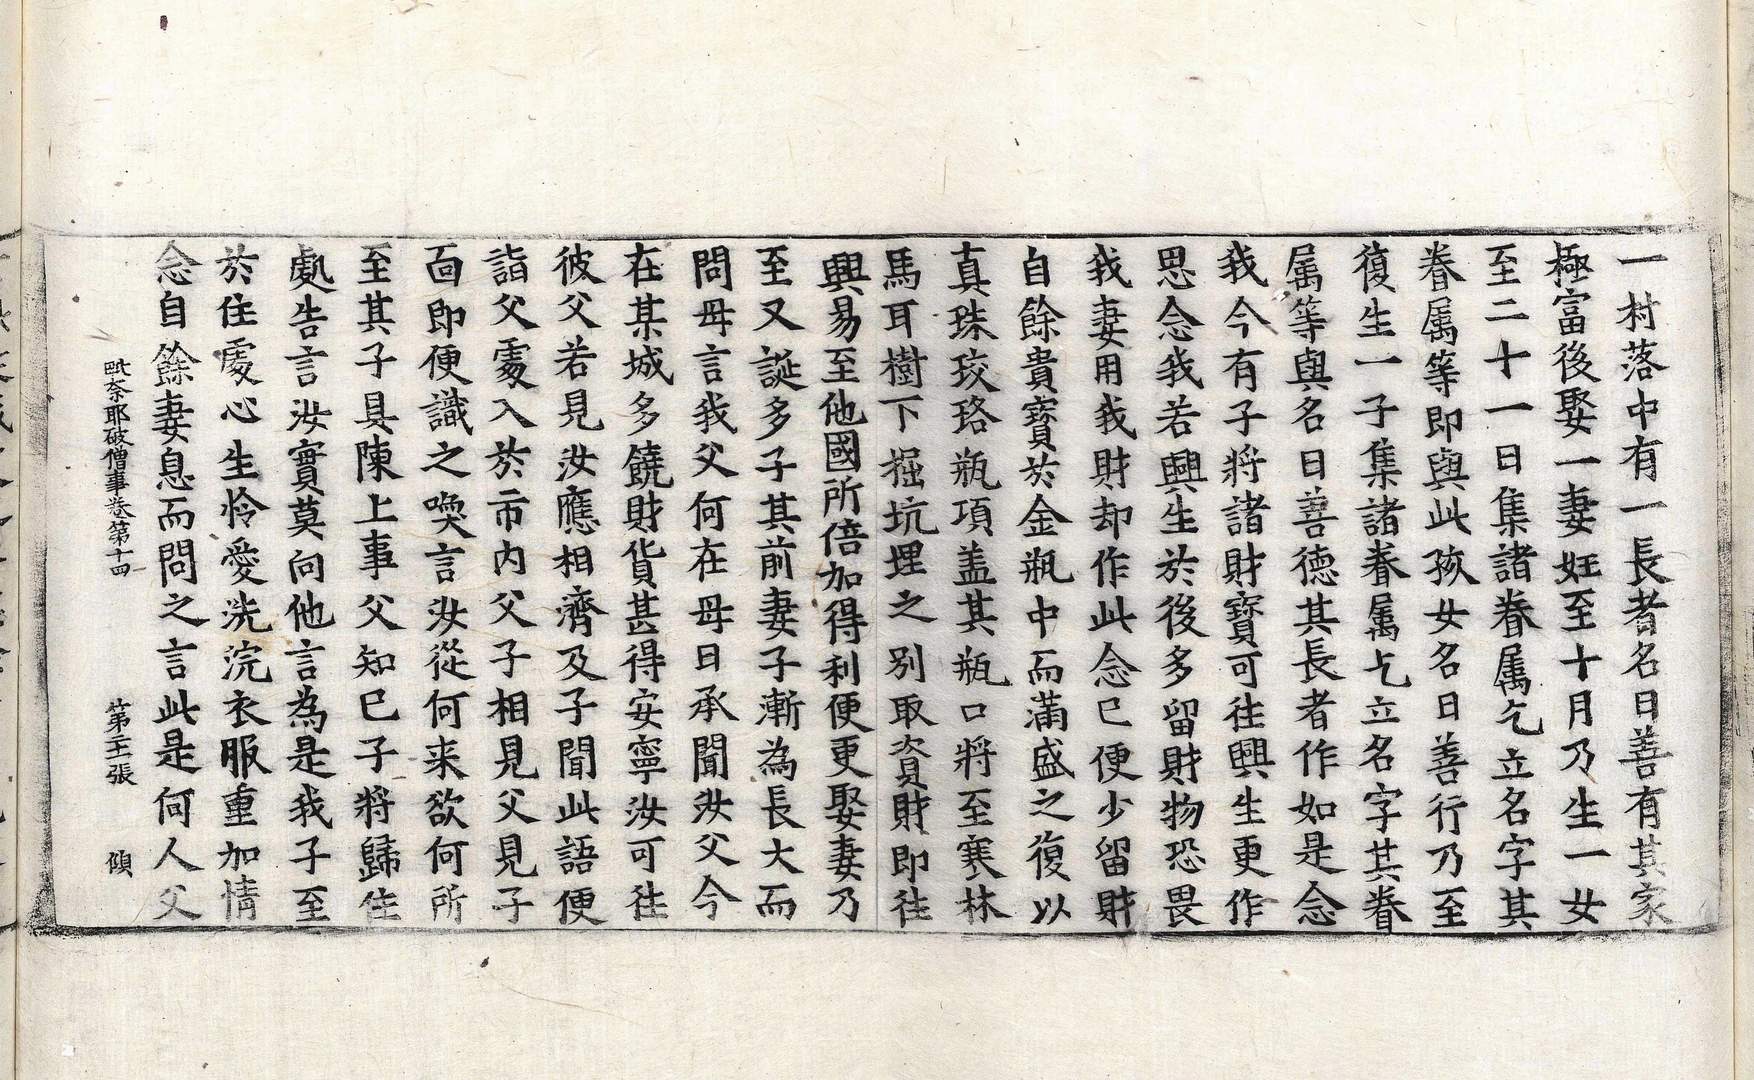 一村落中有一長者名曰善有其家
極富後娶一妻妊至十月乃生一女
至二十一日集諸眷属乞立名字其
眷属等即與此孩女名曰善行乃至
復生一子集諸眷属乞立名字其眷
属等與名曰善德其長者作如是念
我今有子将諸財寶可往興生更作
思念我若興生於後多留財物恐畏
我妻用我財却作此念已便少留財
自餘貴寶於金瓶中而滿盛之復以
真珠珓珞瓶項盖其瓶口将至寒林
馬耳樹下掘坑埋之别取資財即往
興易至他國所倍加得利便更娶妻乃
至又誕多子其前妻子漸為長大而
問母言我父何在母曰承聞汝父今
在某城多饒財貨甚得安寧汝可往
彼父若見汝應相濟及子聞此語便
詣父處入於市内父子相見父見子
面即便識之喚言汝從何来欲何所
至其子具陳上事父知已子将歸住
處告言汝實莫向他言為是我子至
於住處心生怜愛洗浣衣服重加情
念自餘妻息而問之言此是何人父
毗奈耶破僧事卷第十四 第二十張 傾